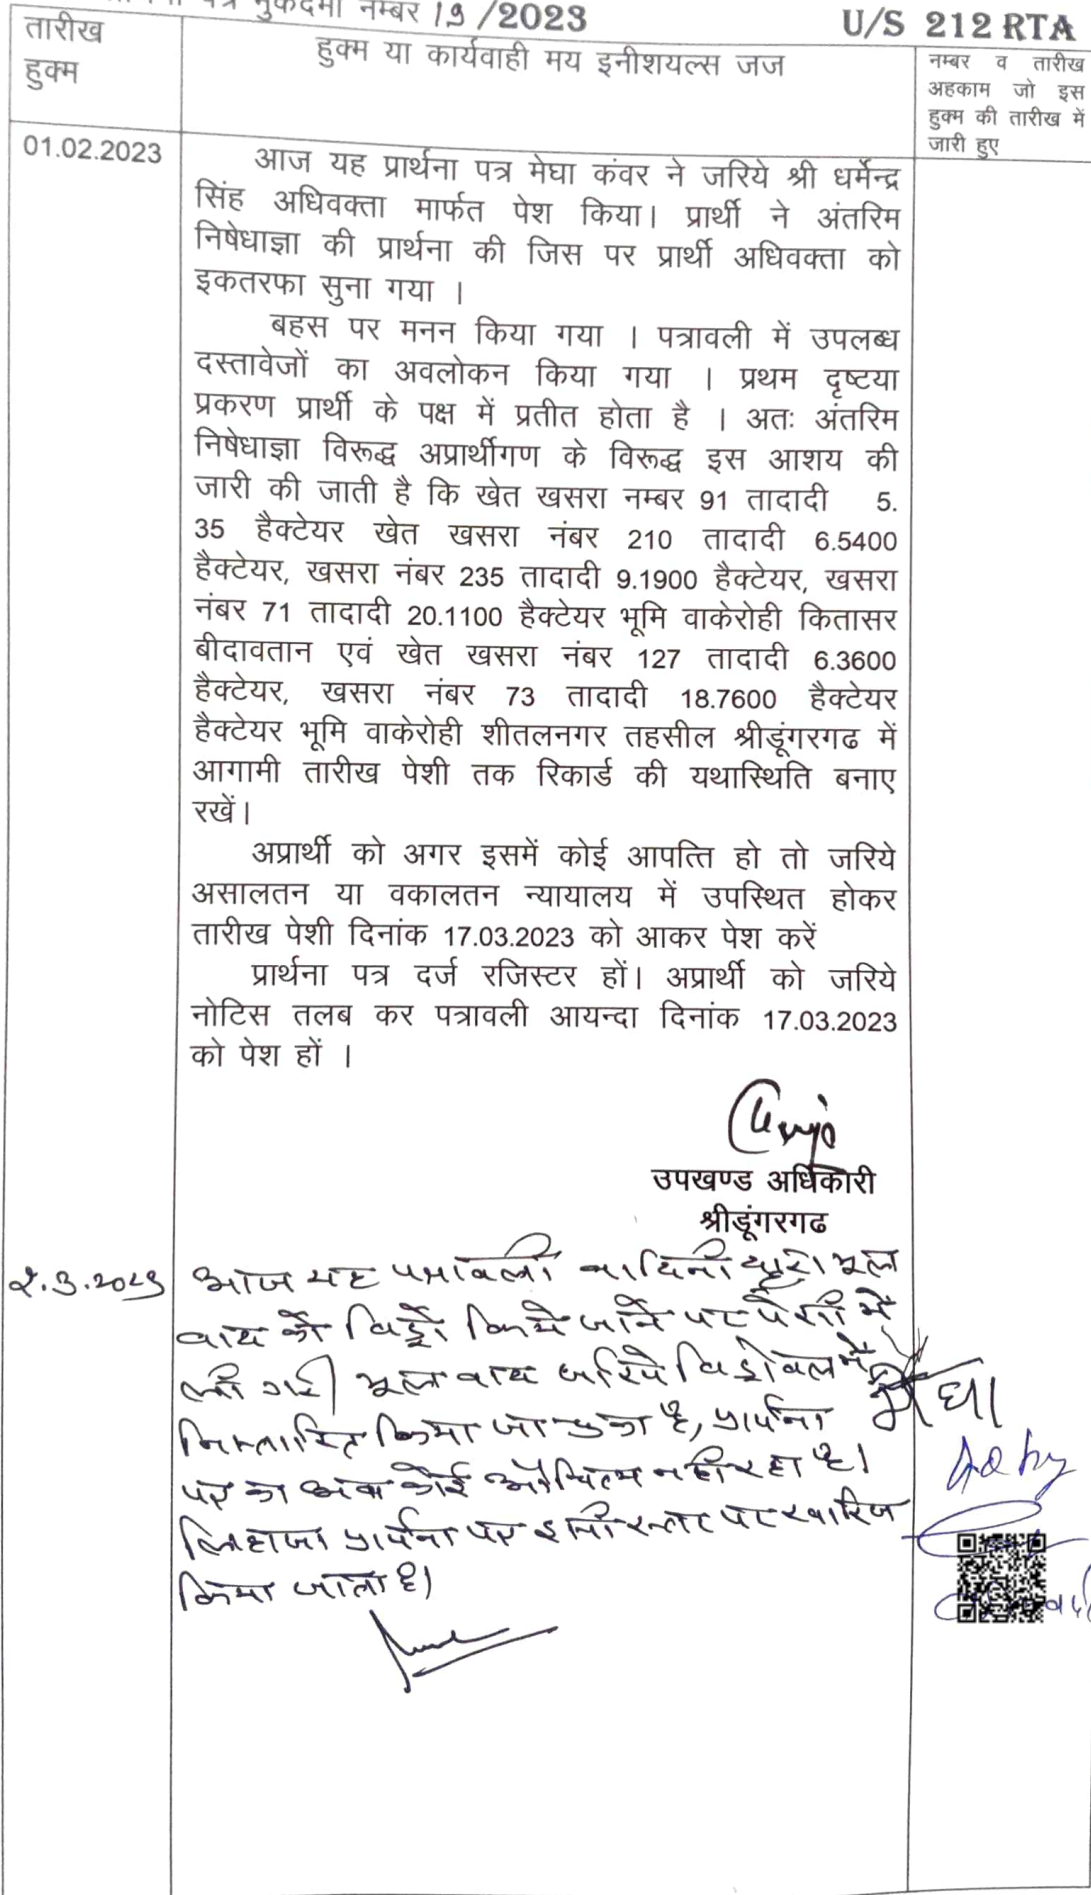 पत्र मुकदमा नम्बर 19 /2023
U/S 212 RTA
तारीख
हुक्म
हुक्म या कार्यवाही मय इनीशयल्स जज
नम्बर व तारीख
अहकाम जो इस
हुक्म की तारीख में
जारी हुए
01.02.2023
आज यह प्रार्थना पत्र मेघा कंवर ने जरिये श्री धर्मेन्द्र
सिंह अधिवक्ता मार्फत पेश किया। प्रार्थी ने अंतरिम
निषेधाज्ञा की प्रार्थना की जिस पर प्रार्थी अधिवक्ता को
इकतरफा सुना गया ।
बहस पर मनन किया गया । पत्रावली में उपलब्ध
दस्तावेजों का अवलोकन किया गया । प्रथम दृष्टया
प्रकरण प्रार्थी के पक्ष में प्रतीत होता है । अतः अंतरिम
निषेधाज्ञा विरूद्ध अप्रार्थीगण के विरूद्ध इस आशय की
जारी की जाती है कि खेत खसरा नम्बर 91 तादादी 5.
35 हैक्टेयर खेत खसरा नंबर 210 तादादी 6.5400
हैक्टेयर, खसरा नंबर 235 तादादी 9.1900 हैक्टेयर, खसरा
नंबर 71 तादादी 20.1100 हैक्टेयर भूमि वाकेरोही कितासर
बीदावतान एवं खेत खसरा नंबर 127 तादादी 6.3600
हैक्टेयर, खसरा नंबर 73 तादादी 18.7600 हैक्टेयर
हैक्टेयर भूमि वाकेरोही शीतलनगर तहसील श्रीडूंगरगढ में
आगामी तारीख पेशी तक रिकार्ड की यथास्थिति बनाए
रखें।
अप्रार्थी को अगर इसमें कोई आपत्ति हो तो जरिये
असालतन या वकालतन न्यायालय में उपस्थित होकर
तारीख पेशी दिनांक 17.03.2023 को आकर पेश करें
प्रार्थना पत्र दर्ज रजिस्टर हों। अप्रार्थी को जरिये
नोटिस तलब कर पत्रावली आयन्दा दिनांक 17.03.2023
को पेश हों ।
उपखण्ड अधिकारी
श्रीडूंगरगढ
2.3.2023
आज यह पत्रावली वादिनी द्वारा मूल
वाद को विड्रो किये जाने पर पेशी में
ली गई। मूल वाद जरिये विड्रोवल में
निस्तारित किया जा चुका है, प्रार्थना
पत्र का अब कोई औचित्य नहीं रहा है।
लिहाजा प्रार्थना पत्र इसी स्तर पर खारिज
किया जाता है।
मेघा